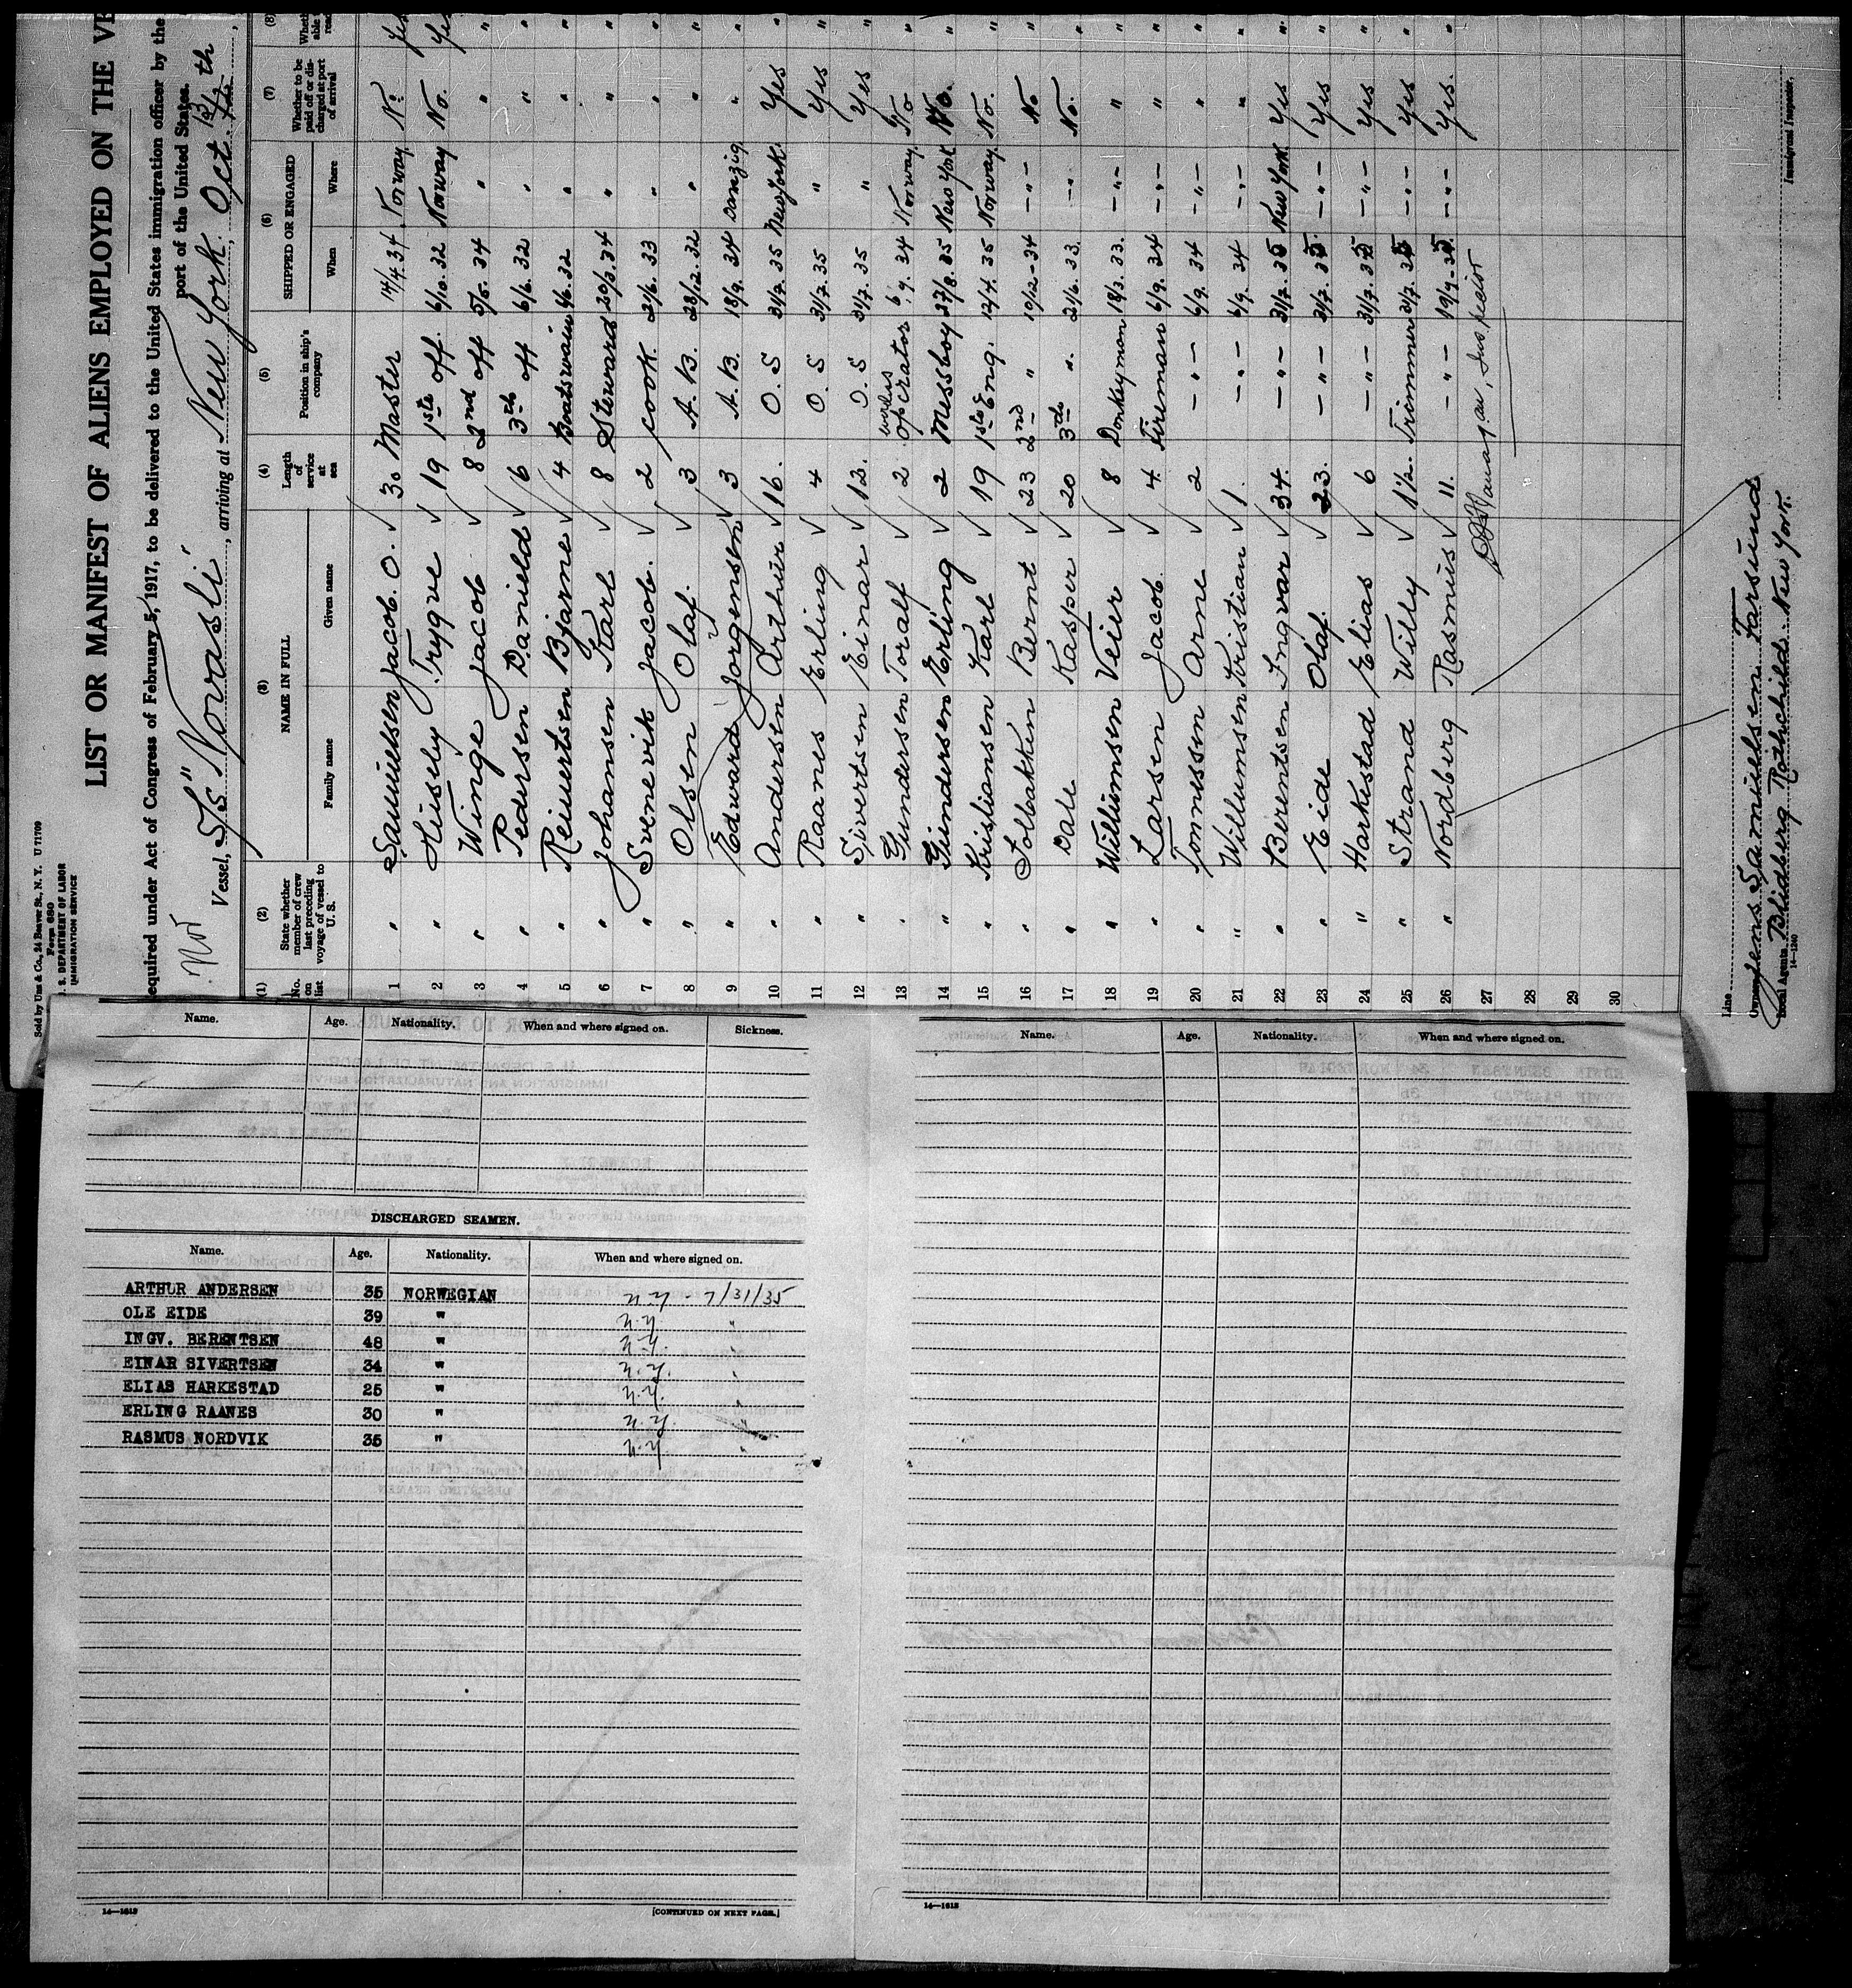 Sold by Unz & Co., 24 Beaver St., N. Y. U 71709
Form 680
U. S. DEPARTMENT OF LABOR
IMMIGRATION SERVICE
LIST OR MANIFEST OF ALIENS EMPLOYED ON THE VE
equired under Act of Congress of February 5, 1917, to be delivered to the United States immigration officer by the
port of the United States.
Nor
Vessel, S/S "Novasli", arriving at New York, Oct. 13th
(1) (2) (3) (4) (5) (6) (7) (8)
No. on list
State whether member of crew last preceding voyage of vessel to U. S.
NAME IN FULL
Family name Given name
Length of service at sea
Position in ship's company
SHIPPED OR ENGAGED
When Where
Whether to be paid off or discharged at port of arrival
1 " Samuelsen Jacob. O. √ 30 Master 14/4.34 Norway No. Yes
2 " Huseby Trygve √ 19 1st off. 6/10.32 Norway No. Yes
3 " Winge Jacob √ 8 2nd off 5/5.34 " " "
4 " Pedersen Daniel √ 6 3rd off 6/6.32 " " "
5 " Reinertsen Bjarne √ 4 Boatswain 4/6.32 " " "
6 " Johansen Karl √ 8 Steward 20/3.34 " " "
7 " Svenevik Jacob. √ 2 cook. 21/6.33 " " "
8 " Olsen Olaf. √ 3 A.B. 28/12.32 " " "
9 " Edward Jorgensen √ 3 A.B. 18/9.34 Danzig " "
10 " Andersen Arthur √ 16. O.S 31/7.35 New York. Yes "
11 " Raanes Erling √ 4 O.S 31/7.35 " Yes "
12 " Sivertsen Einar √ 12. O.S 31/7.35 " Yes "
13 " Gundersen Toralf √ 2 wireless operator 6/9.34 Norway. No "
14 " Gundersen Erling √ 2 Messboy 27/8.35 New York No. "
15 " Kristiansen Karl √ 19 1st Eng. 12/7.35 Norway. No. "
16 " Solbakken Bernt √ 23 2nd " 10/12-34 -"- No "
17 " Dale Kasper √ 20 3rd " 21/6.33. -"- No. "
18 " Willumsen Veier √ 8 Donkeyman 18/3.33. -"- " "
19 " Larsen Jacob. √ 4. Fireman 6/9.34 -"- " "
20 " Tonnessen Arne √ 2 -"- 6/9.34 -"- " "
21 " Willumsen Kristian √ 1. -"- 6/9.34 -"- " "
22 " Berentsen Ingvar √ 34. -"- 31/7.35 New York. Yes "
23 " Eide Olaf. √ 23. -"- 31/7.35. -"- Yes "
24 " Harkestad Elias √ 6 -"- 31/7.35 -"- Yes "
25 " Strand Willy √ 1½. Trimmer 31/7.35 -"- Yes "
26 " Nordberg Rasmus √ 11. -"- 19/9-35. -"- Yes. "
27
28
29
30
Inspector
Line
Owners Jens Samuelsen Farsund
Local Agents Blidberg Rothchild. New York.
14-1240
Immigrant Inspector.
Name. Age. Nationality. When and where signed on. Sickness.
DISCHARGED SEAMEN.
Name. Age. Nationality. When and where signed on.
ARTHUR ANDERSEN 35 NORWEGIAN N.Y - 7/31/35
OLE EIDE 39 " N.Y. "
INGV. BERENTSEN 48 " N.Y. "
EINAR SIVERTSEN 34 " N.Y. "
ELIAS HARKESTAD 25 " N.Y. "
ERLING RAANES 30 " N.Y. "
RASMUS NORDVIK 35 " N.Y "
14—1613
[CONTINUED ON NEXT PAGE.]
Name. Age. Nationality. When and where signed on.
14—1613